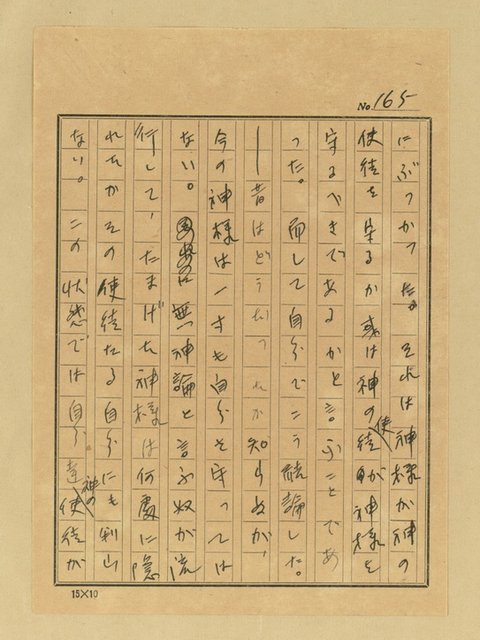 No. 165
にぶつかつた。それは神様が神の
使徒を守るか或は神の使徒が神様を
守るべきであるかと言ふことであ
つた。而して自分でこう結論した。
——昔はどうだつたか知らぬが、
今の神様は一寸も自分を守つては
ない。無神論と言ふ奴が流
行して、たまげた神様は何處に隠
れたかその使徒たる自分にも判ら
ない。この状態では自分達神の使徒が
15×10